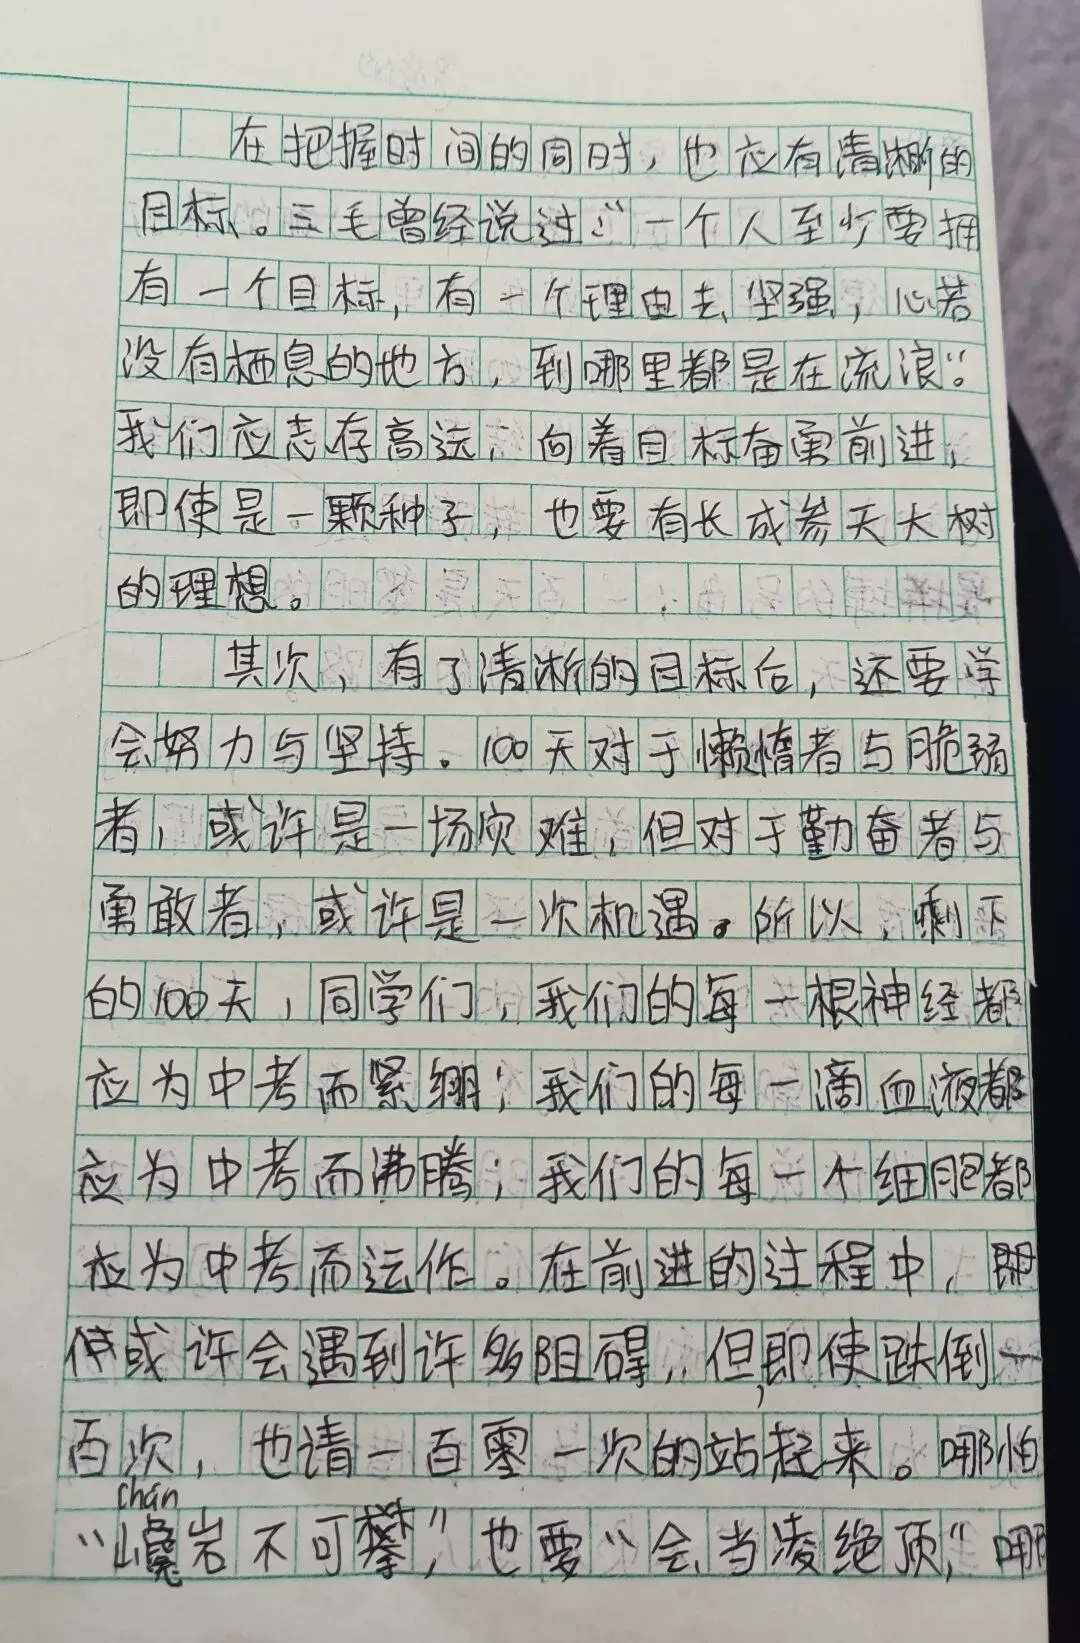 在把握时间的同时，也应有清淅的
目标。三毛曾经说过：“一个人至少要拥
有一个目标，有一个理由去坚强，心若
没有栖息的地方，到哪里都是在流浪”。
我们应志存高远，向着目标奋勇前进，
即使是一颗种子，也要有长成参天大树
的理想。
其次，有了清淅的目标后，还要学
会努力与坚持。100天对于懒惰者与脆弱
者，或许是一场灾难，但对于勤奋者与
勇敢者，或许是一次机遇。所以，剩下
的100天，同学们，我们的每一根神经都
应为中考而紧绷；我们的每一滴血液都
应为中考而沸腾；我们的每一个细胞都
应为中考而运作。在前进的过程中，即
使或许会遇到许多阻碍，但，即使跌倒一
百次，也请一百零一次的站起来。哪怕
chán
“巉岩不可攀”，也要“会当凌绝顶”，哪